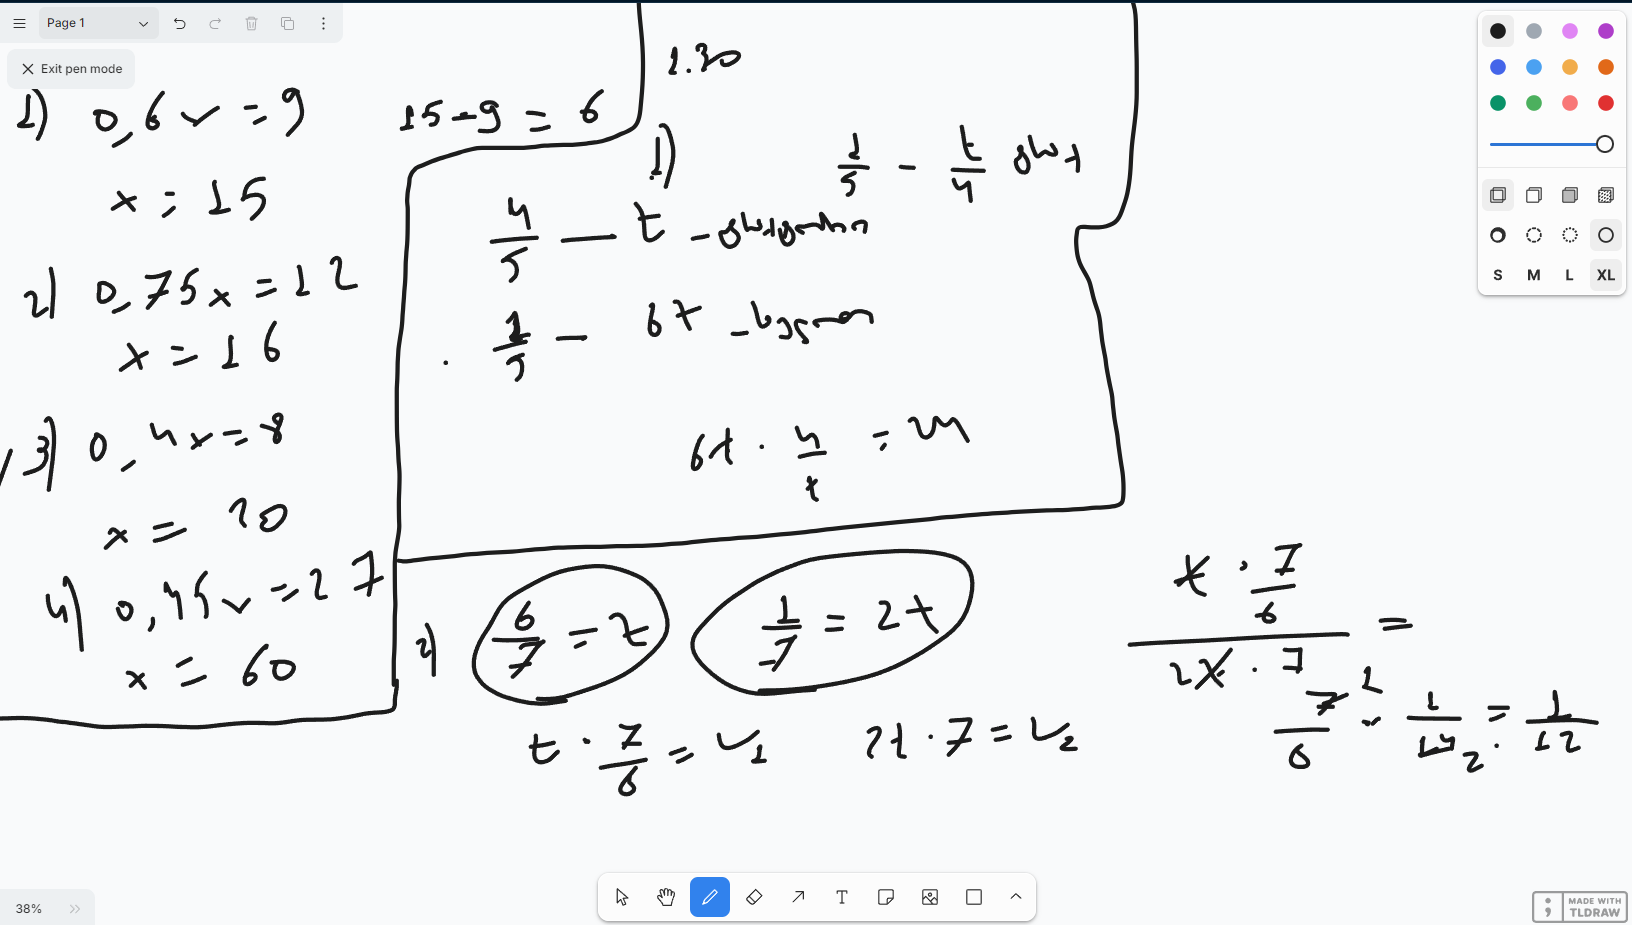 Page 1
Exit pen mode
1) 0,6x = 9
15 - 9 = 6
x = 15
2) 0,75x = 12
x = 16
3) 0,4x = 8
x = 20
4) 0,45x = 27
x = 60
1.20
1)
1/5 - t/4
4/5 — t -
1/5 — 6t -
6t · 4/t =
2) 6/7 = t
1/7 = 2t
t · 7/6 = v1
2t · 7 = v2
t · 7/6 / 2t · 7 =
7/6 : 1/14 = 1/12
S M L XL
38%
MADE WITH
TLDRAW